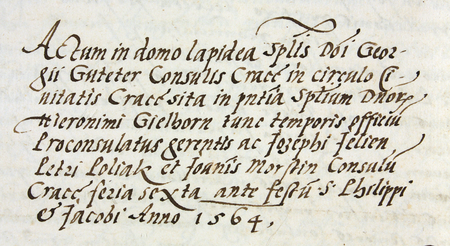 Actum in domo lapidea Splis Dni Geor-
gii Guteter Consulis Cracē in circulo Ci-
uitatis Cracē sita in pntia Splium Dnor
Hieronimi Gielhorn tunc temporis officiū
Proconsulatus gerentis ac Jozephi Jelien
Petri Poliak et Joanīs Morstin Consulū
Cracē feria sexta ante festū S Philippi
& Jacobi Anno 1564,